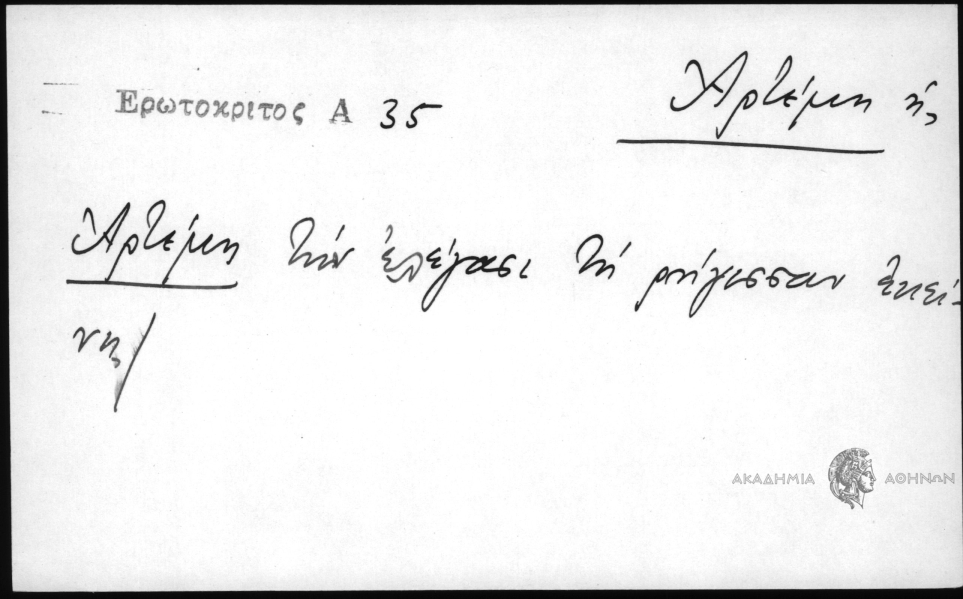 Ερωτοκριτος Α 35
Ἀρτέμη ἡ,
Ἀρτέμη τήν ἐλέγασι τή ρήγισσαν ἐκεί-
νη/
ΑΚΑΔΗΜΙΑ ΑΘΗΝΩΝ